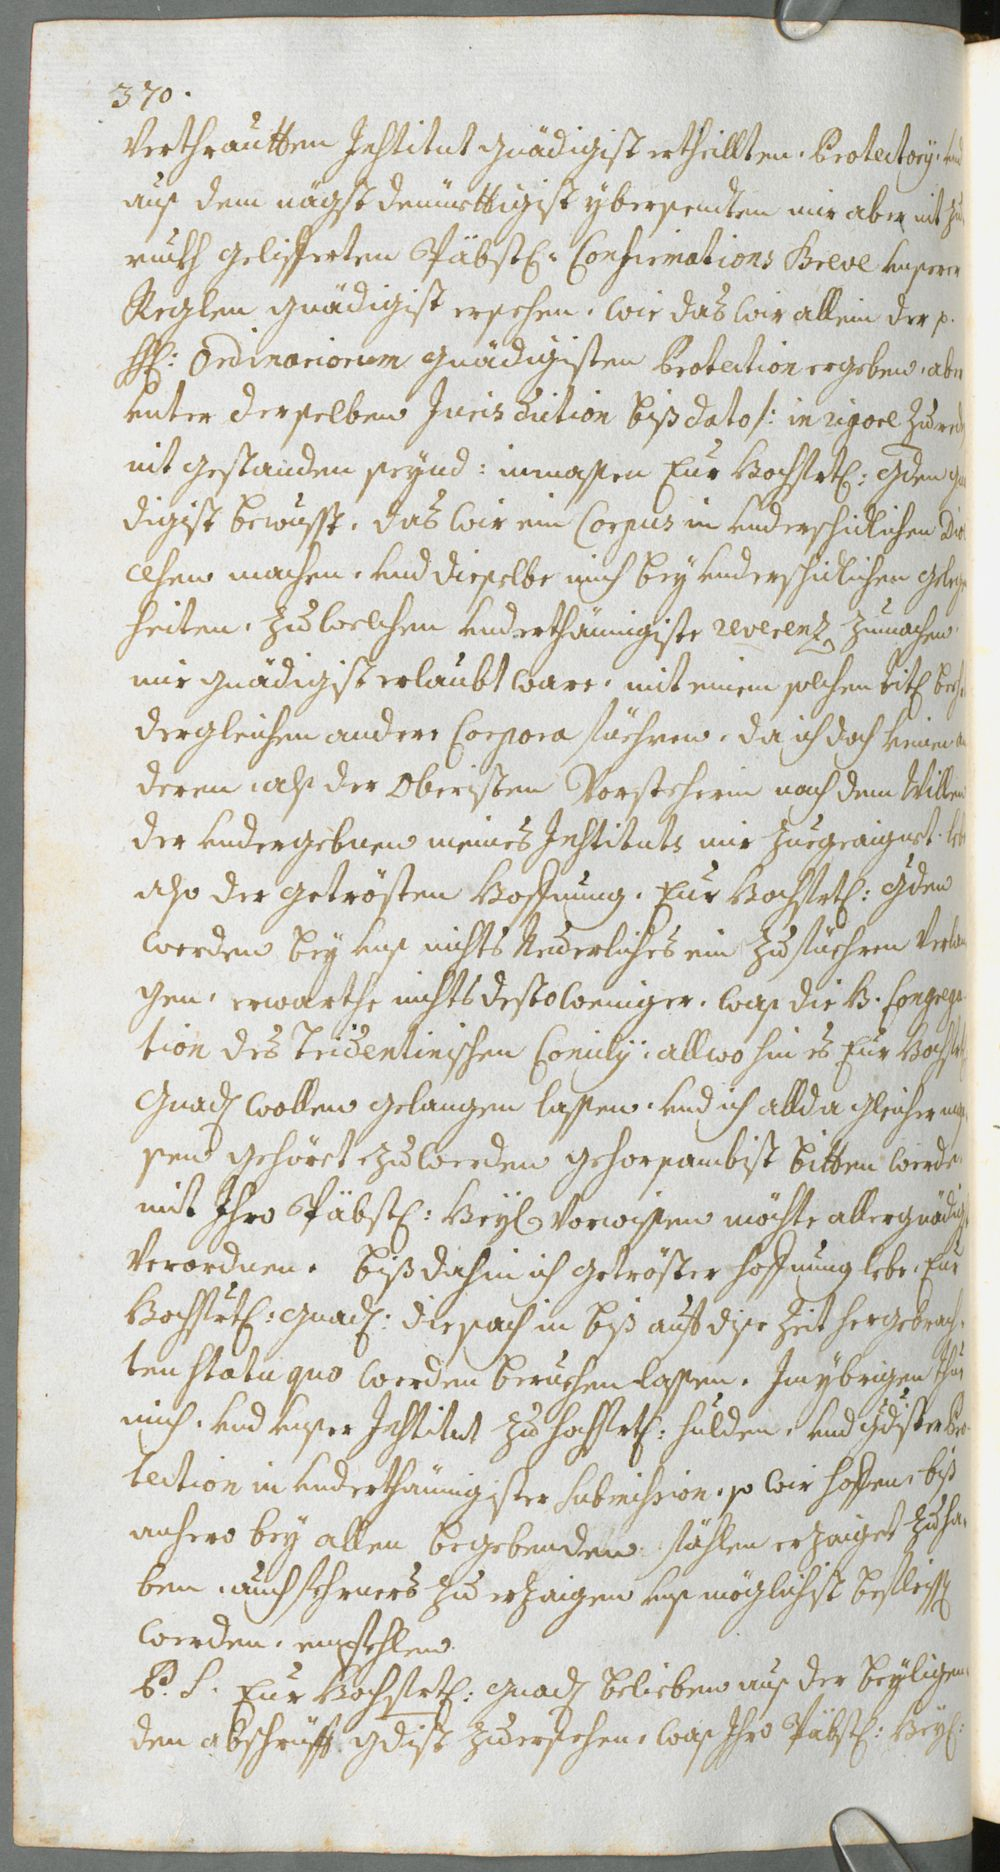 370.
Verthrautten Institut gnädigist ertheillten. Protectory. und
aus dem nägst demüettigist ybersendten mir aber nit zu
rückh gelifferten Päbstl: Confirmations Breve unserer
Reglen gnädigist ersehen. wie das wir allein der p.
HH: Ordinariorum gnädigisten Protection ergeben, aber
unter derselben Jurisdiction biß dato /: in rigore zu reden
nit gestanden seynd: inmassen Eur Hochfrtl: Gden gnä
digist bewusst. das wir ein Corpus in underschidlichen Dioe
cesen machen. und dieselbe mich bey underschidlichen gelegen
heiten. zu welchen underthänigiste reverenz zumachen.
mir gnädigist erlaubt ware. mit einem solchen titl
dergleichen andere Corpora füehren. da ich doch keinen an
deren. als der Oberisten Vorsteherin nach dem Willen
der undergebnen meines Instituts mir zuegeaignet. lebe
also der getrösten Hoffnung. Eur Hochfrtl: Gden
werden bey uns nichts Neuerliches ein zu füehren verlan
gen. erwarthe nichts desto weniger. was die H. Congrega
tion des Tridentinischen Concily. allwo hin es Eur Hochfrtl
Gnad wollen gelangen lassen. und ich allda gleicher mas
sen gehöret zu werden gehorsambist bitten werde.
mit Ihro Päbstl: Heyl: Vorwissen möchte allergnädigst
Verordnen. biß dahin ich getröster hoffnung lebe. Eur
Hochfürtl: Gnad: die sach in biß auff dise Zeit hergebrach
ten statu quo werden beruehen lassen. Im ybrigen thue
mich. und unser Institut zu hochfrtl: hulden. und Gdister Pro
tection in underthänigister Submission. so wir hoffen. biß
anhero bey allen begebenden fählen erzaiget zu ha
ben. auch fehrners zu erzaigen uns möglichist befleissen
werden. empfehlen
P. S. Eur Hochfrtl: Gnad belieben aus der beyligen
den abschrüfft gdist zu ersehen. was Ihro Päbstl: Heyl: